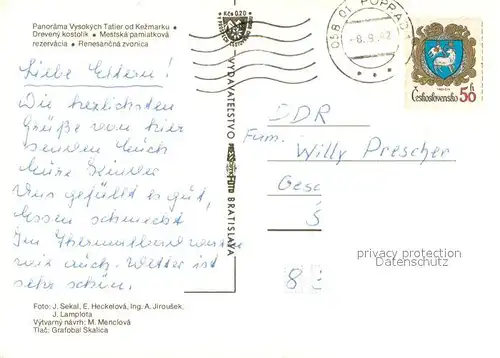 Panoráma Vysokých Tatier od Kežmarku •
Drevený kostolík • Mestská pamiatková
rezervácia • Renesančná zvonica
Liebe Eltern!
Die herzlichsten
Grüße von hier
senden Euch
Eure Kinder
Uns gefällt es gut,
Essen schmeckt
Im Thermalbad waren
wir auch. Wetter ist
sehr schön.
Foto: J. Sekal, E. Heckelová, Ing. A. Jiroušek,
J. Lamplota
Výtvarný návrh: M. Menclová
Tlač: Grafobal Skalica
Kčs 0,20
VYDAVATEĽSTVO
BRATISLAVA
058 01 POPRAD 1
-8.9.82
Československo 50 h
DDR
Fam.
Willy Prescher
Gesc
S
8
privacy protection
Datenschutz